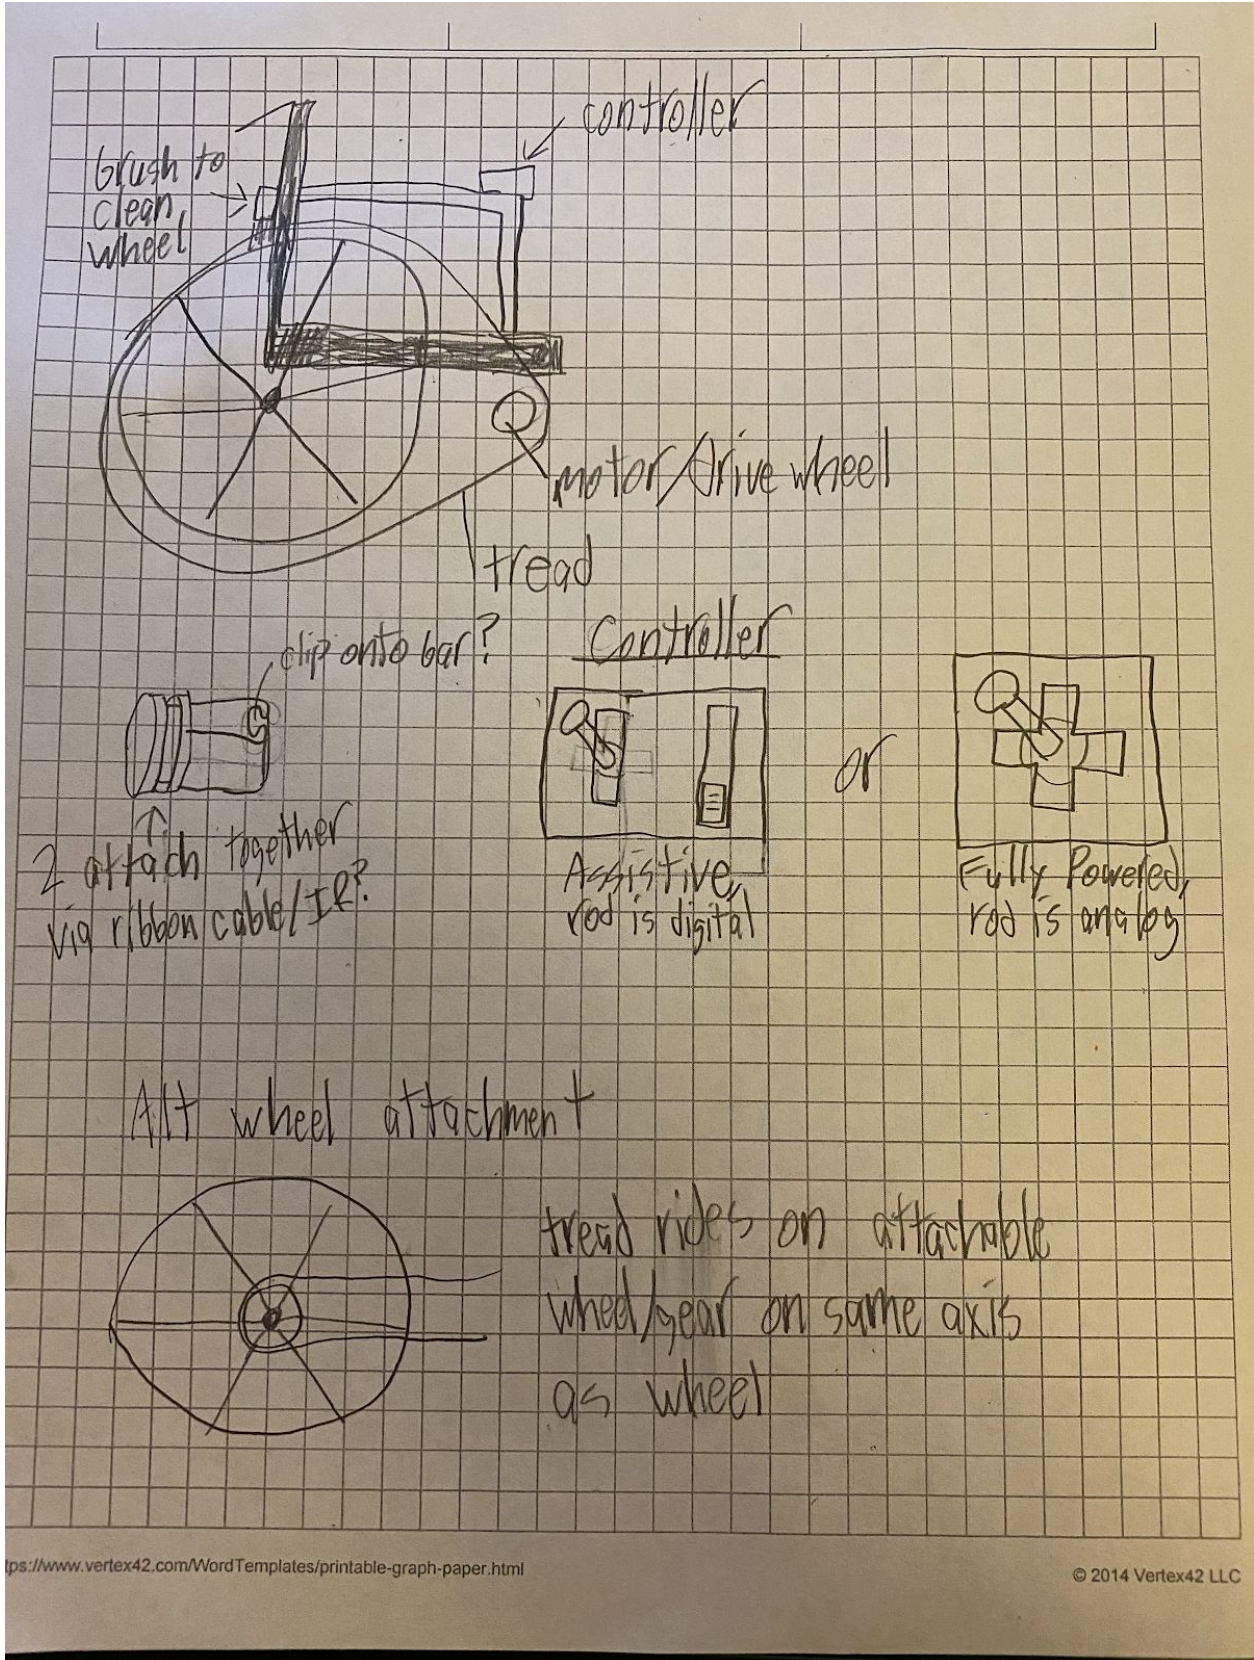 controller
brush to
clean
wheel
motor/Drive wheel
tread
clip onto bar?
Controller
or
2 attach together
via ribbon cable/IR?
Assistive,
rod is digital
Fully Powered,
rod is analog
Alt wheel attachment
tread rides on attachable
wheel/gear on same axis
as wheel
tps://www.vertex42.com/WordTemplates/printable-graph-paper.html
© 2014 Vertex42 LLC